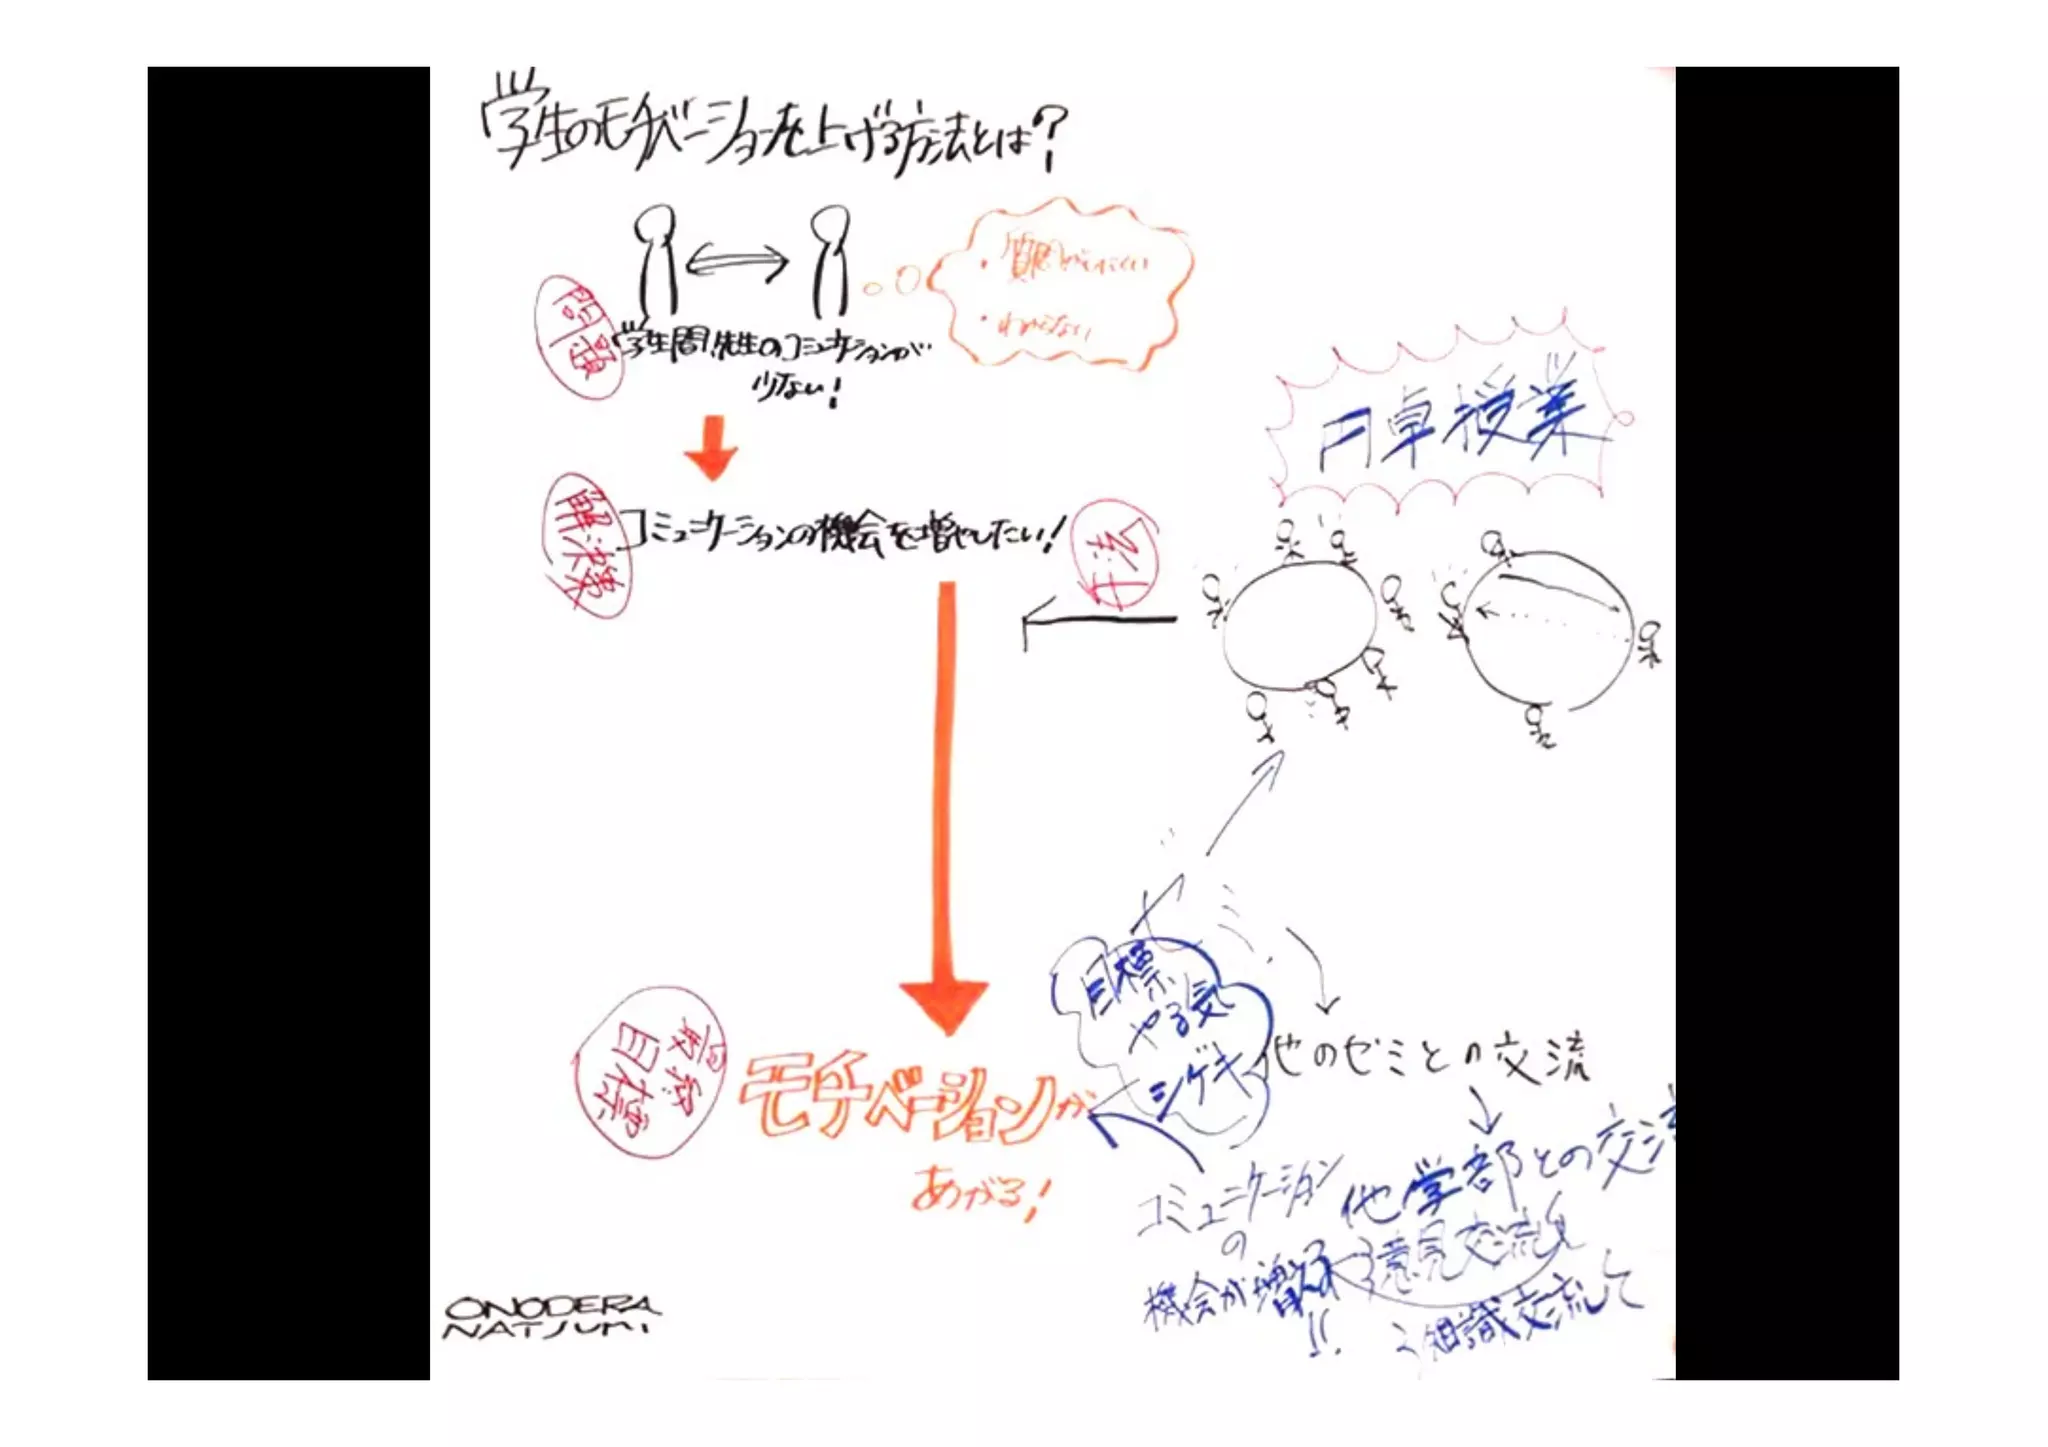 学生のモチベーションを上げる方法とは?
・質問がしにくい
・わからない
問題
学生間、先生のコミュニケーションが
少ない!
円卓授業
解決策
コミュニケーションの機会を増やしたい!
最終
目標
モチベーションが
あがる!
目標
やる気
シゲキ
他のゼミとの交流
他学部との交流
コミュニケーション
の
機会が増える
!!
意見交流
知識交流
ONODERA
NATSUMI